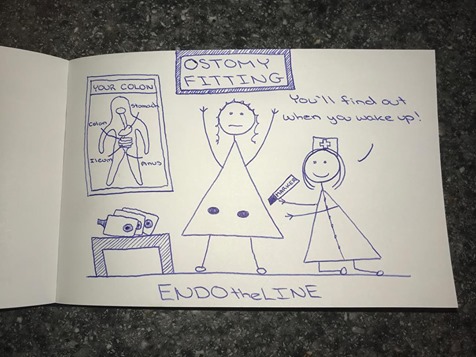 OSTOMY
FITTING
YOUR COLON
Stomach
Colon
Ileum
Anus
You'll find out
when you wake up!
MARKER
ENDOtheLINE